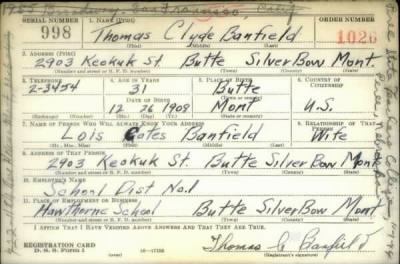 SERIAL NUMBER
1. NAME (Print)
ORDER NUMBER
998
Thomas Clyde Banfield
1026
(First) (Middle) (Last)
2. ADDRESS (Print)
2903 Keokuk St. Butte Silver Bow Mont.
(Number and street or R. F. D. number) (Town) (County) (State)
3. TELEPHONE
4. AGE IN YEARS
5. PLACE OF BIRTH
6. COUNTRY OF CITIZENSHIP
2-3454
31
Butte
DATE OF BIRTH
(Town or county)
12 26 1909
Mont
U.S.
(Mo.) (Day) (Yr.)
(State or country)
7. NAME OF PERSON WHO WILL ALWAYS KNOW YOUR ADDRESS
8. RELATIONSHIP OF THAT PERSON
Lois Cates Banfield
Wife
(Mr., Mrs., Miss) (First) (Middle) (Last)
9. ADDRESS OF THAT PERSON
2903 Keokuk St. Butte Silver Bow Mont
(Number and street or R. F. D. number) (Town) (County) (State)
10. EMPLOYER'S NAME
School Dist No.1
11. PLACE OF EMPLOYMENT OR BUSINESS
Hawthorne School Butte Silver Bow Mont
(Number and street or R. F. D. number) (Town) (County) (State)
I AFFIRM THAT I HAVE VERIFIED ABOVE ANSWERS AND THAT THEY ARE TRUE.
REGISTRATION CARD
D. S. S. Form 1
16-17105
Thomas C Banfield
(Registrant's signature)